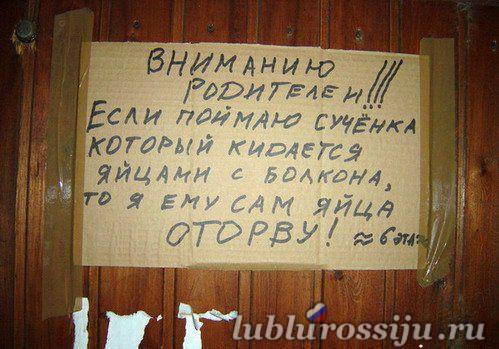 ВНИМАНИЮ
РОДИТЕЛЕЙ!!!
ЕСЛИ ПОЙМАЮ СУЧЁНКА
КОТОРЫЙ КИДАЕТСЯ
ЯЙЦАМИ С БОЛКОНА,
ТО Я ЕМУ САМ ЯЙЦА
ОТОРВУ! ≈ 6 ЭТАЖ
lublurossiju.ru